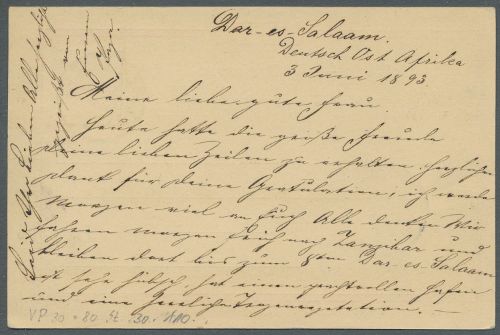 Dar-es-Salaam.
Deutsch Ost Afrika
3 Juni 1893.
Meine liebe gute Frau.
Heute hatte die große Freude
Deine lieben Zeilen zu erhalten herzlichen
Dank für Deine Gratulation; ich werde
Morgen viel an Euch Alle denken. Wir
fahren morgen früh nach Zanzibar und
bleiben dort bis zum 8ten Dar-es-Salaam
ist sehr hübsch, hat einen prachtvollen Hafen
und eine herrliche Tropenvegetation. —
Seid Ihr Lieben Alle herzlichst
gegrüßt von
Eurem
VP 30.-80 St. 30.